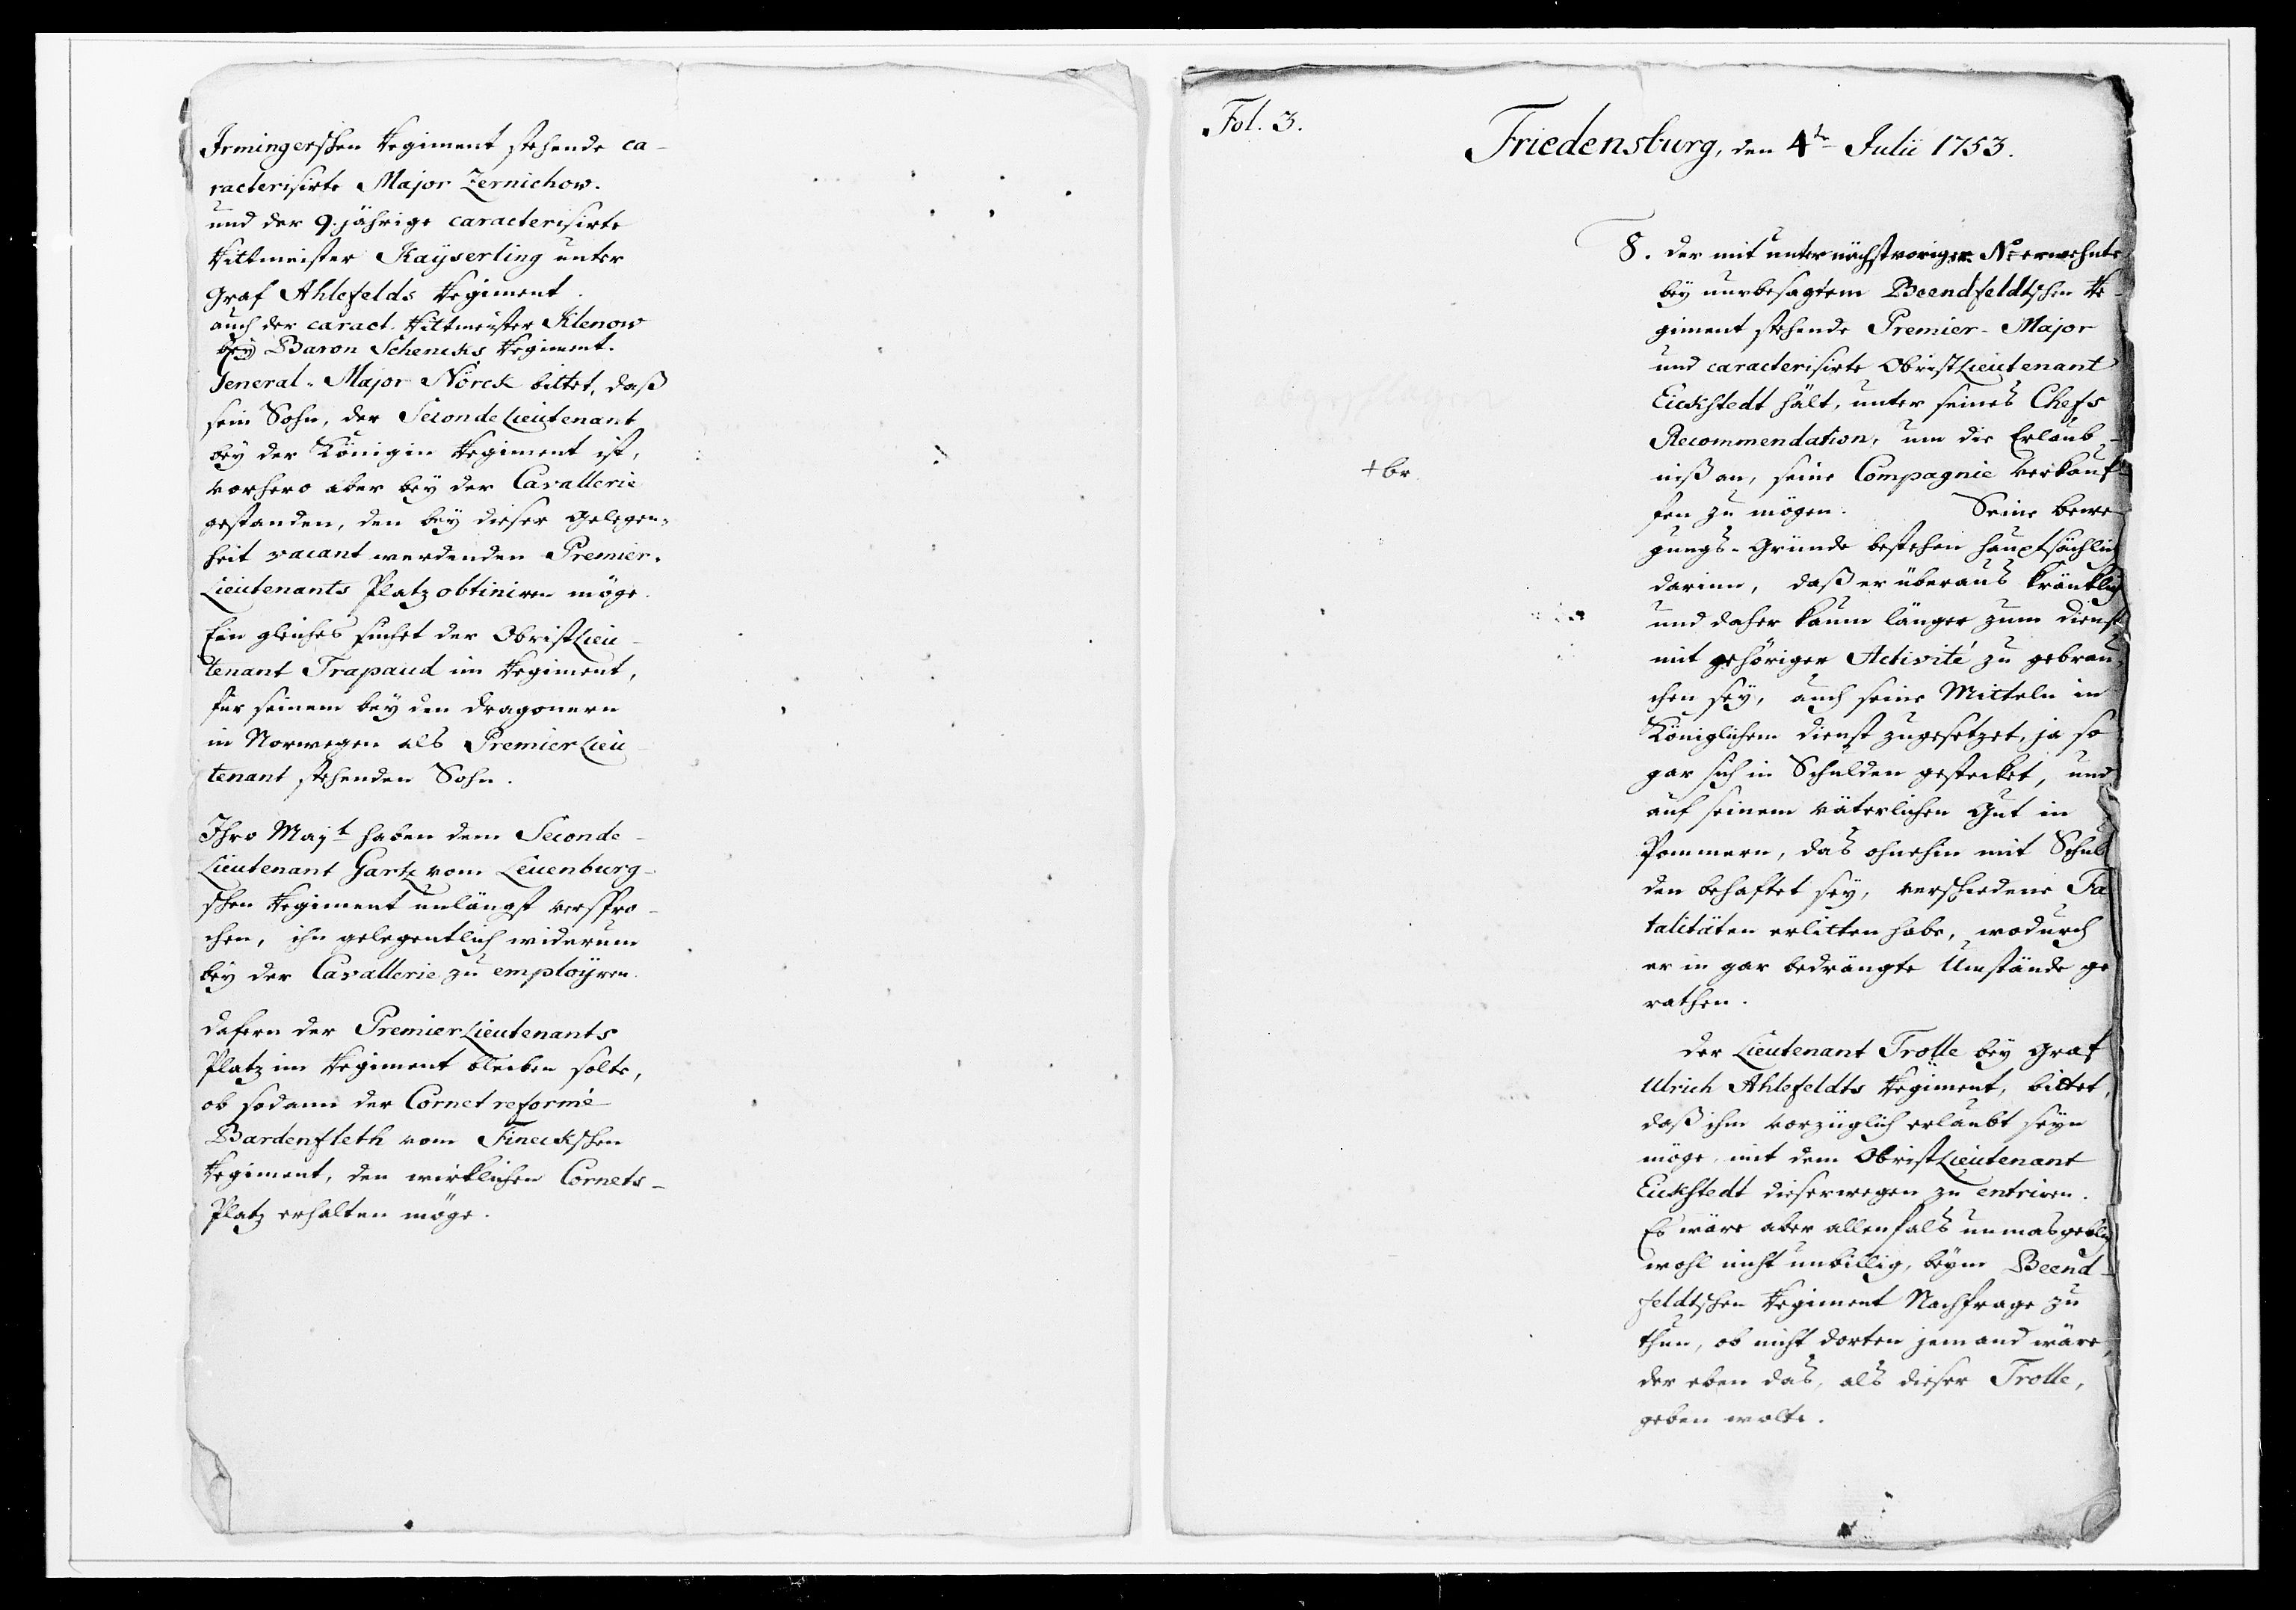 Irmingerschen Regiment stehende ca-
racterisirte Major Zernichow.
und der 9.jährige caracterisirte
Rittmeister Kayserling unter
Graf Ahlefelds Regiment
auch der caract. Rittmeister Klenow
bey Baron Schencks Regiment.
General-Major Nörck bittet, daß
sein Sohn, der SecondeLieutenant
bey der Königin Regiment ist,
vorhero aber bey der Cavallerie
gestanden, den bey dieser Gelegen-
heit vacant werdenden Premier-
Lieutenants Platz obtiniren möge.
Ein gleiches suchet der ObristLieu-
tenant Trapaud im Regiment,
für seinem bey den Dragonern
in Norwegen als PremierLieu-
tenant stehenden Sohn.
Ihro Majt haben dem Seconde-
Lieutenant Gartz vom Leuenburg-
schen Regiment unlängst verspro-
chen, ihn gelegentlich widerum
bey der Cavallerie zu employren.
Dafern der PremierLieutenants
Platz im Regiment bleiben solte,
ob sodann der Cornet reformé
Bardenfleth vom Fineckschen
Regiment, den wirklichen Cornets-
Platz erhalten möge.
Fol. 3.
Friedensburg, den 4te Julii 1753.
8. Der mit unter nächstvoriger No erwehnte
bey nurbesagtem Beendfeldtschen Re-
giment stehende Premier-Major
und caracterisirte ObristLieutenant
Eickstedt hält, unter seines Chefs
Recommendation, um die Erlaub-
niß an, seine Compagnie verkauf-
+br.
fen zu mögen. Seine Bewe-
gungs-Gründe bestehen hauptsächlich
darinn, daß er überaus kränklich
und daher kaum länger zum Dienst
mit gehöriger Activité zu gebrau-
chen sey, auch seine Mitteln in
Königlichem Dienst zugesetzet, ja so
gar sich in Schulden gestecket, und
auf seinem väterlichen Gut in
Pommern, das ohnehin mit Schul
den behaftet sey, verschiedene Fa
talitäten erlitten habe, wodurch
er in gar bedrängte Umstände ge
rathen.
Der Lieutenant Trolle bey Graf
Ulrich Ahlefeldts Regiment, bittet,
daß ihm vorzüglich erlaubt seyn
möge, mit dem ObristLieutenant
Eickstedt dieserwegen zu entriren.
Es wäre aber allenfals unmasgeblich
wohl nicht unbillig, beym Beend-
feldtschen Regiment Nachfrage zu
thun, ob nicht dorten jemand wäre,
der eben das, als dieser Trolle,
geben wolte.